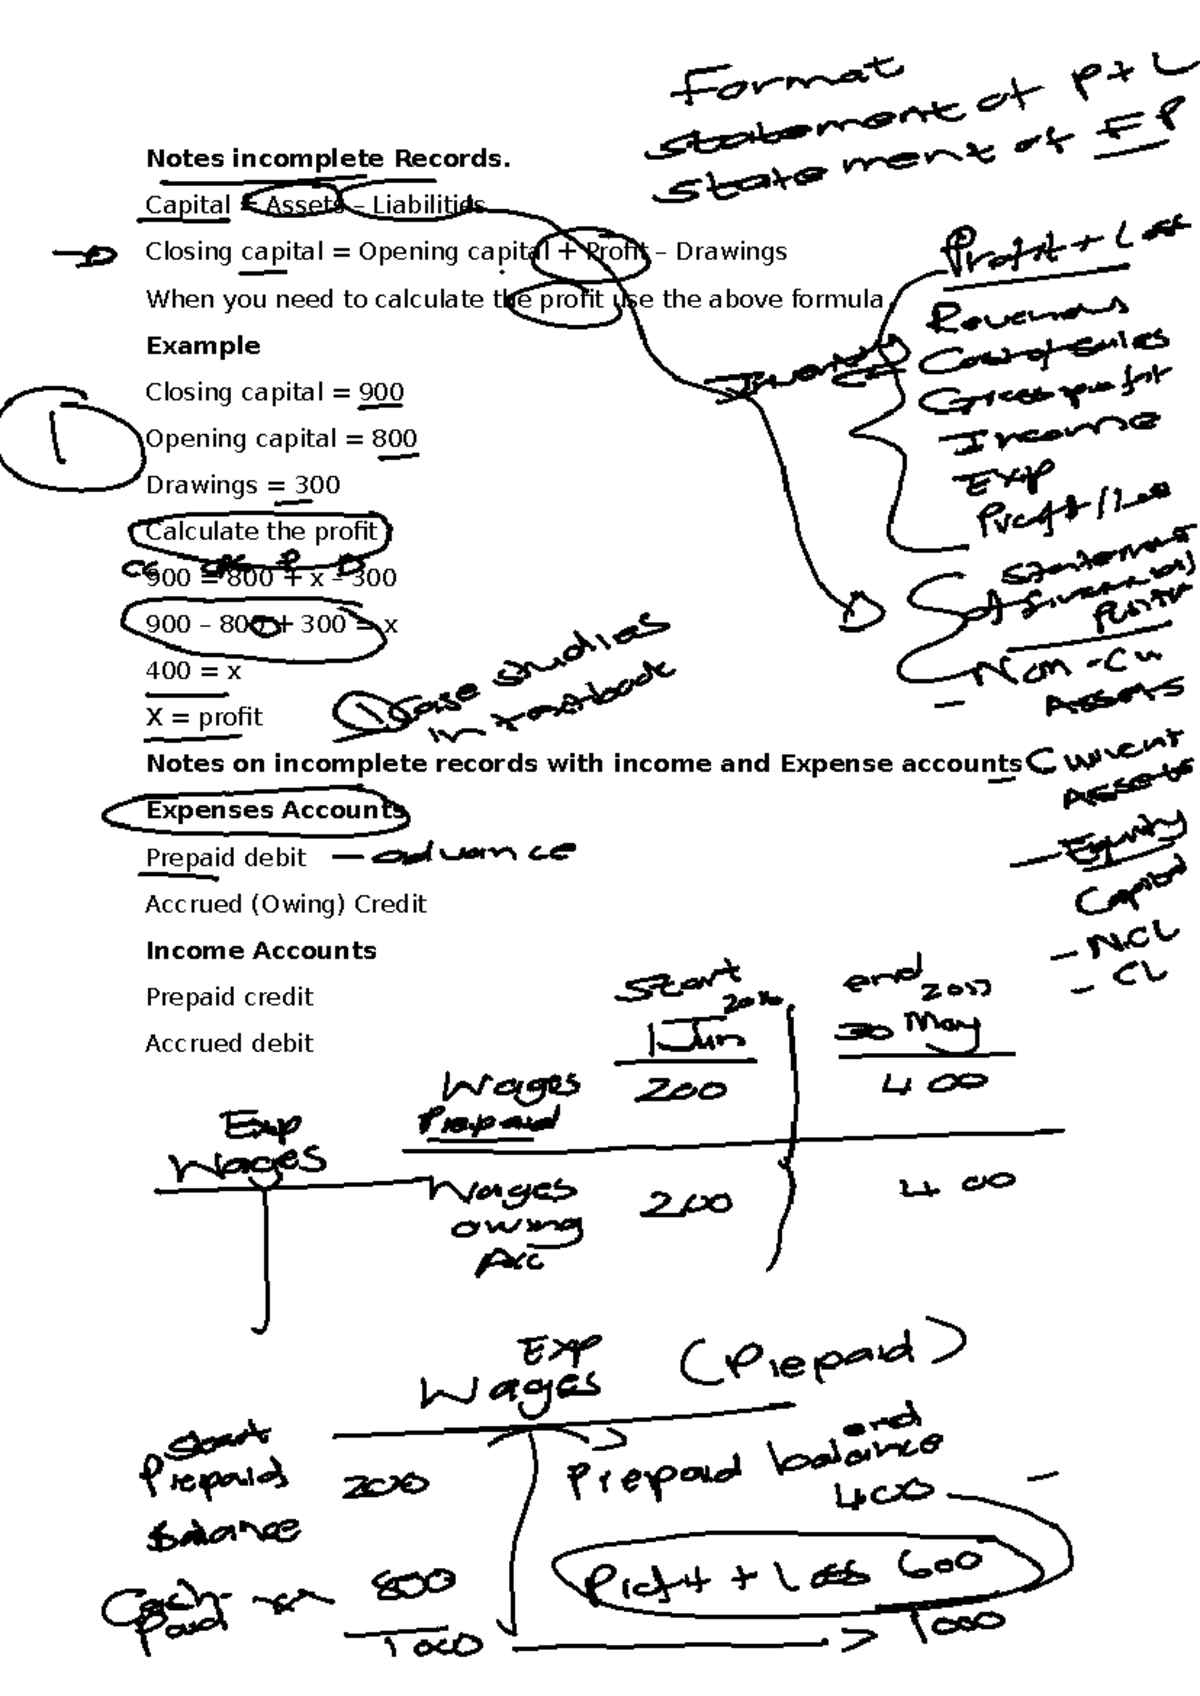 Format
statement of P+L
statement of FP
Notes incomplete Records.
Capital = Assets – Liabilities
Closing capital = Opening capital + Profit – Drawings
When you need to calculate the profit use the above formula
Example
Closing capital = 900
Opening capital = 800
Drawings = 300
Calculate the profit
900 = 800 + x – 300
900 – 800 + 300 = x
400 = x
X = profit
1
Profit + Loss
Revenues
Cost of Sales
Gross profit
Income
Exp
Profit / Loss
Inventory
Statement
of financial
Position
Non-Cu
Assets
Current
Assets
Equity
Capital
- NCL
- CL
1 Case studies
in textbook
Notes on incomplete records with income and Expense accounts
Expenses Accounts
Prepaid debit — advance
Accrued (Owing) Credit
Income Accounts
Prepaid credit
Accrued debit
Start end
2016 2017
1 Jun 30 May
Wages 200 400
Prepaid
Wages 200 400
owing
Acc
Exp
Wages
Exp
Wages (Prepaid)
Start
Prepaid 200
Balance
Cash
Paid 800
1000
end
Prepaid balance
400
Profit + Loss 600
1000